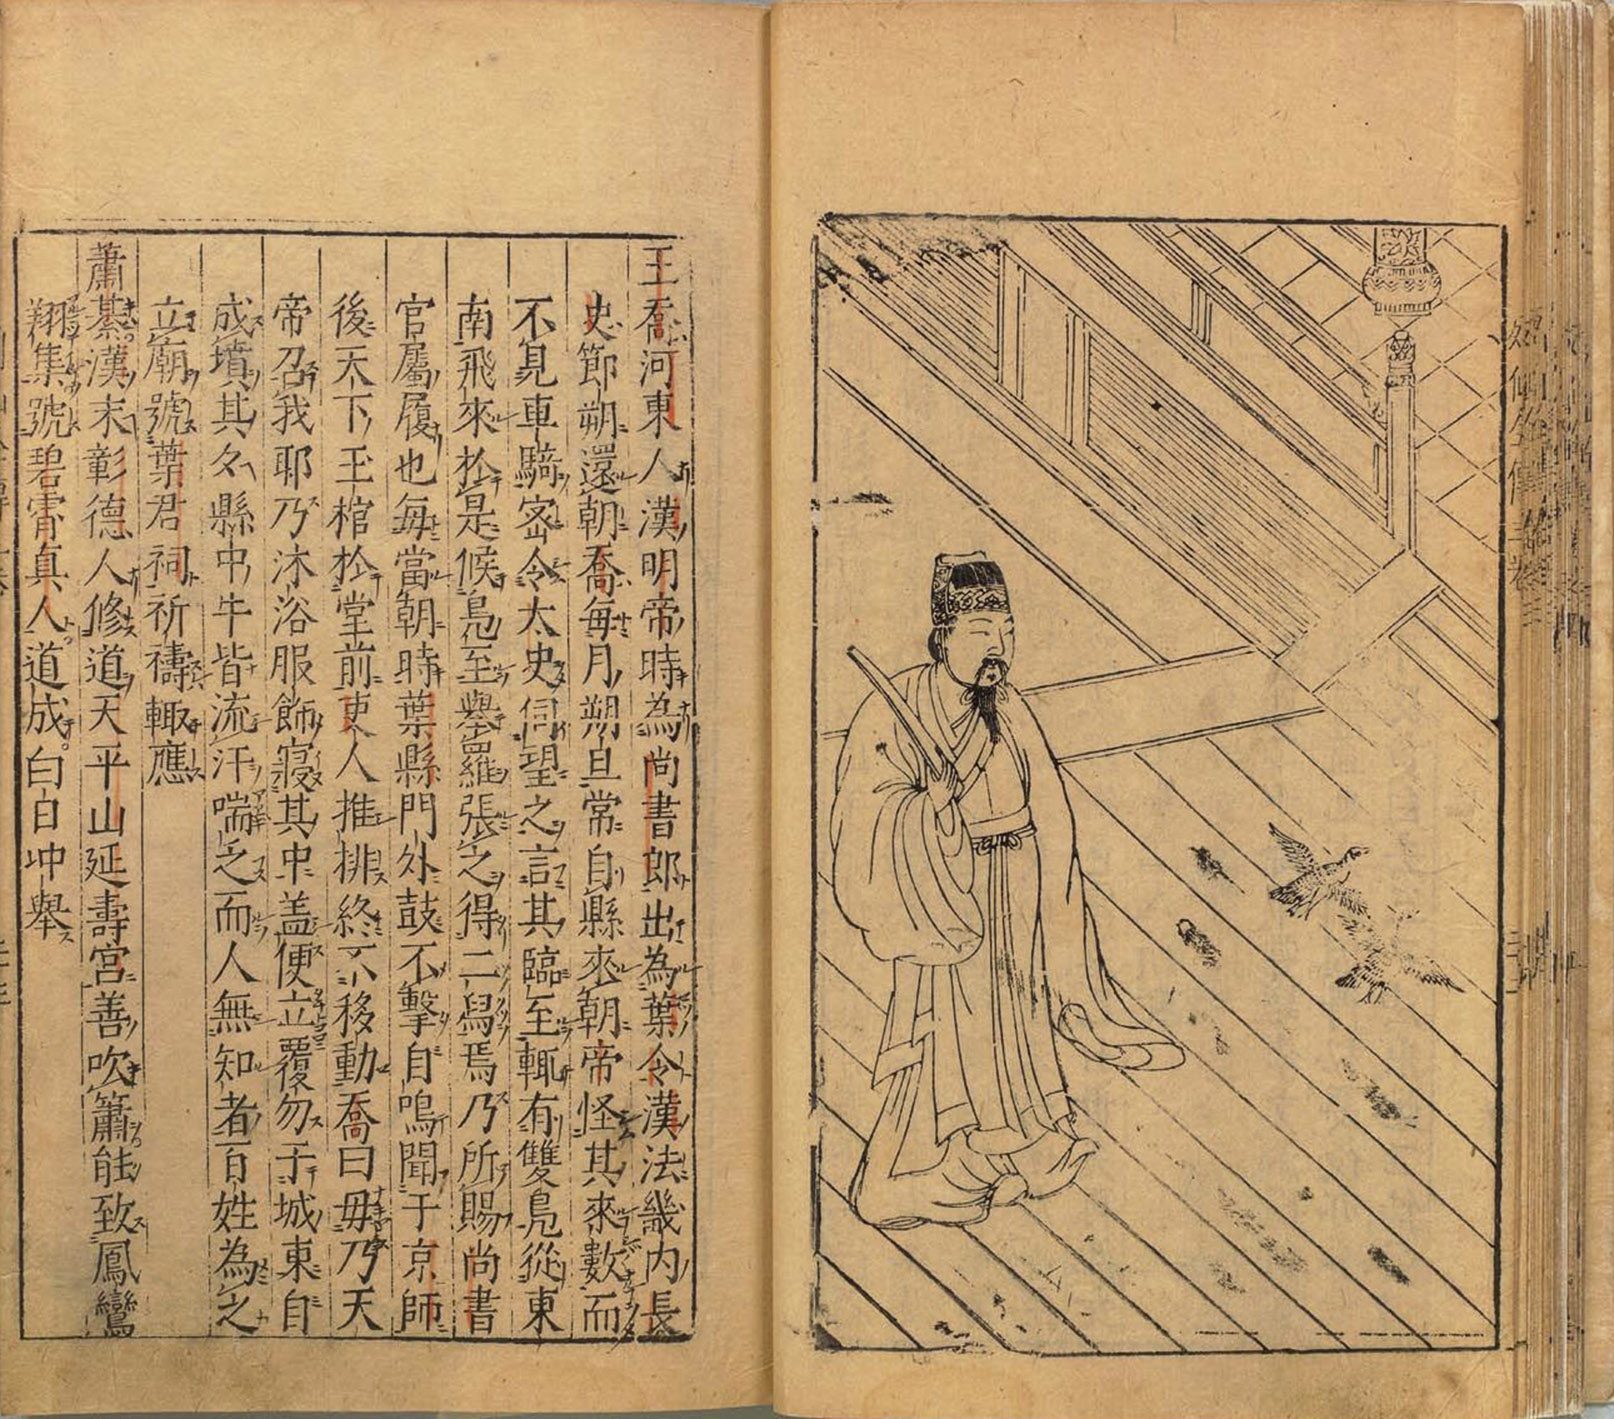 王喬河東人漢明帝時為尚書郎出為葉令漢法畿内長
史節朔還朝喬每月朔旦常自縣來朝帝怪其來數而
不見車騎密令太史伺望之言其臨至輒有雙鳧從東
南飛來於是候鳧至舉羅張之得二舄焉乃所賜尚書
官屬履也每當朝時葉縣門外鼓不擊自鳴聞于京師
後天下玉棺於堂前吏人推排終不移動喬曰毋乃天
帝召我耶乃沐浴服飾寢其中盖便立覆勿于城東自
成墳其夕縣中牛皆流汗喘乏而人無知者百姓為之
立廟號葉君祠祈禱輒應
蕭綦漢末彰德人修道天平山延壽宮善吹簫能致鳳鸞
翔集號碧霄真人道成白日冲舉